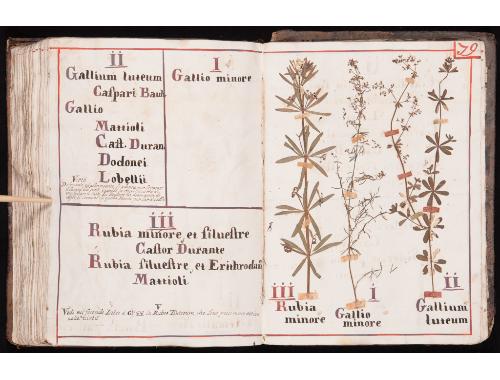 ii
Gallium luteum
Caspari Bauh.
Gallio
Mattioli
Cast. Duran.
Dodonei
Lobellii
I
Gallio minore
iii
Rubia minore et siluestre
Castor Durante
Rubia siluestre et Erithrodan
Mattioli
V
79
iii
Rubia
minore
i
Gallio
minore
ii
Gallium
luteum